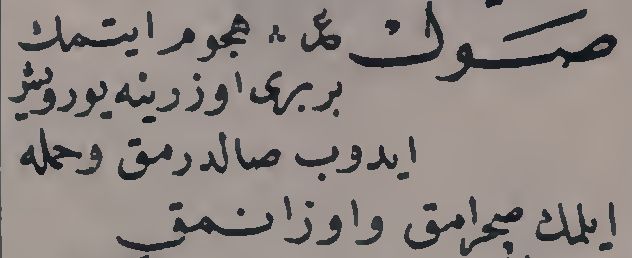 صَوْل ع ۸ هجوم ایتمك
بربری اوزرینه یورویش
ایدوب صالدرمق وحمله
ایلمك صچرامق واوزانمق